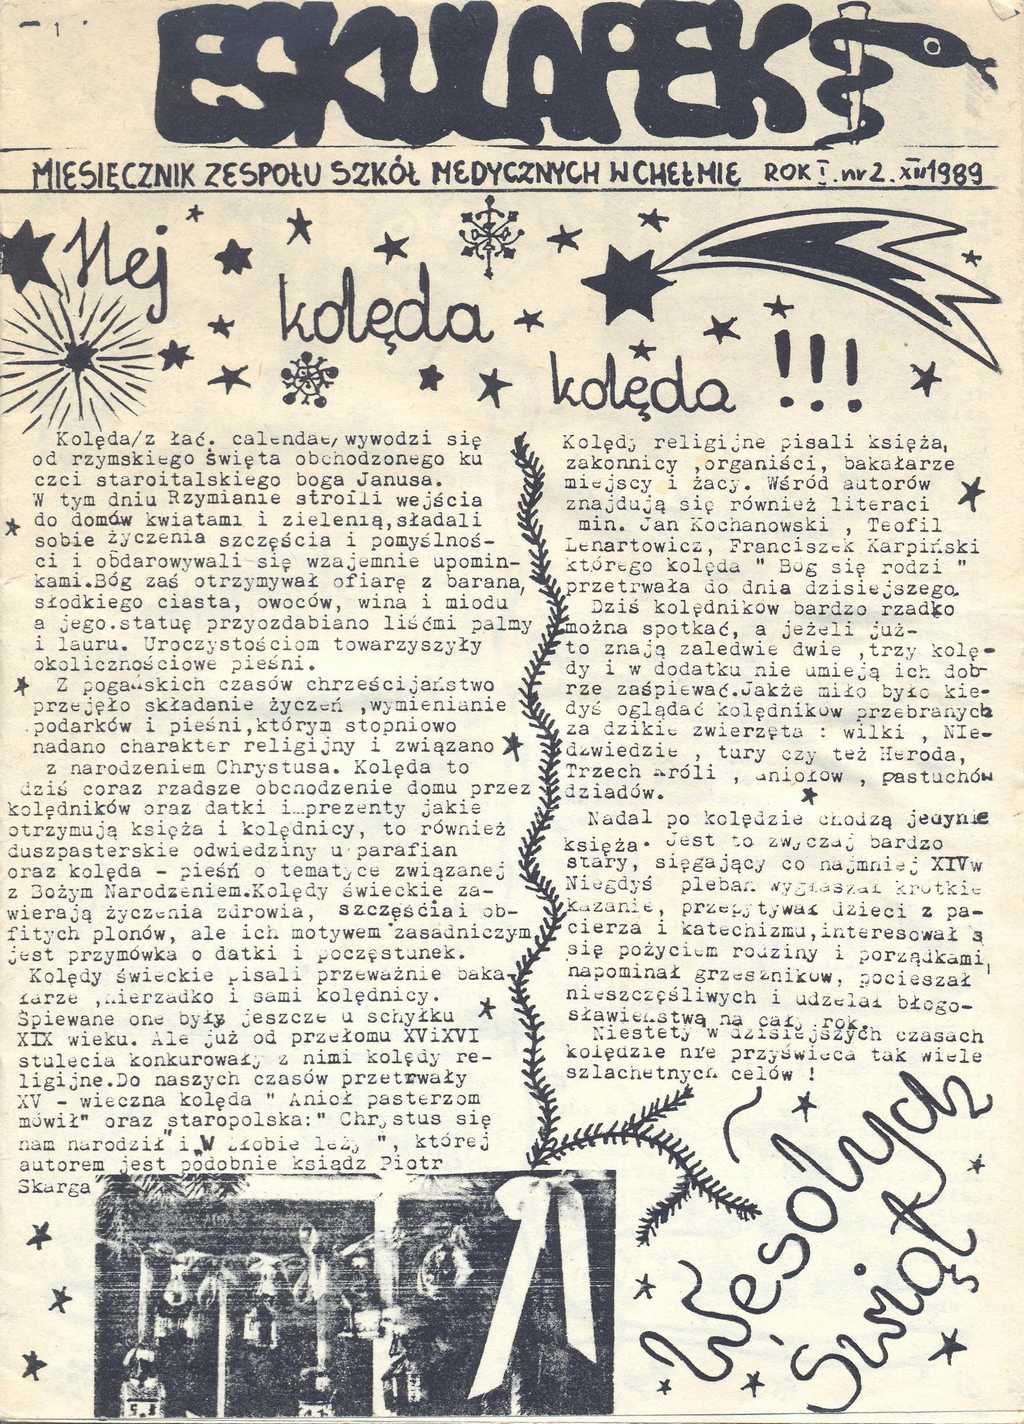 ESKULAPEK
MIESIĘCZNIK ZESPOŁU SZKÓŁ MEDYCZNYCH W CHEŁMIE ROK I. nr 2. XII 1989
Hej
kolęda
kolęda !!!
Kolęda/z łać. calendae/wywodzi się
od rzymskiego święta obchodzonego ku
czci staroitalskiego boga Janusa.
W tym dniu Rzymianie stroili wejścia
do domów kwiatami i zielenią,składali
sobie życzenia szczęścia i pomyślnoś-
ci i obdarowywali się wzajemnie upomin-
kami.Bóg zaś otrzymywał ofiarę z barana,
słodkiego ciasta, owoców, wina i miodu
a jego.statuę przyozdabiano liśćmi palmy
i lauru. Uroczystościom towarzyszyły
okolicznościowe pieśni.
Z pogańskich czasów chrześcijaństwo
przejęło składanie życzeń ,wymienianie
podarków i pieśni,którym stopniowo
nadano charakter religijny i związano
z narodzeniem Chrystusa. Kolęda to
dziś coraz rzadsze obchodzenie domu przez
kolędników oraz datki i prezenty jakie
otrzymują księża i kolędnicy, to również
duszpasterskie odwiedziny u parafian
oraz kolęda - pieśń o tematyce związanej
z Bożym Narodzeniem.Kolędy świeckie za-
wierają życzenia zdrowia, szczęścia i ob-
fitych plonów, ale ich motywem zasadniczym
jest przymówka o datki i poczęstunek.
Kolędy świeckie pisali przeważnie baka-
łarze ,nierzadko i sami kolędnicy.
Śpiewane one były jeszcze u schyłku
XIX wieku. Ale już od przełomu XViXVI
stulecia konkurowały z nimi kolędy re-
ligijne.Do naszych czasów przetrwały
XV - wieczna kolęda " Anioł pasterzom
mówił" oraz staropolska:" Chrystus się
nam narodził" i "W żłobie leży ", której
autorem jest podobnie ksiądz Piotr
Skarga
Kolędy religijne pisali księża,
zakonnicy ,organiści, bakałarze
miejscy i żacy. Wśród autorów
znajdują się również literaci
min. Jan Kochanowski , Teofil
Lenartowicz, Franciszek Karpiński
którego kolęda " Bóg się rodzi "
przetrwała do dnia dzisiejszego.
Dziś kolędników bardzo rzadko
można spotkać, a jeżeli już-
to znają zaledwie dwie ,trzy kolę-
dy i w dodatku nie umieją ich dob-
rze zaśpiewać.Jakże miło było kie-
dyś oglądać kolędników przebranych
za dzikie zwierzęta : wilki , Nie-
dźwiedzie , tury czy też Heroda,
Trzech Króli , aniołów , pastuchów
dziadów.
Nadal po kolędzie chodzą jedynie
księża. Jest to zwyczaj bardzo
stary, sięgający co najmniej XIVw
Niegdyś pleban wygłaszał krótkie
kazanie, przepytywał dzieci z pa-
cierza i katechizmu,interesował s
się pożyciem rodziny i porządkami,
napominał grzeszników, pocieszał
nieszczęśliwych i udzelał błogo-
sławieństwą na cały rok.
Niestety w dzisiejszych czasach
kolędzie nie przyświeca tak wiele
szlachetnych celów !
Wesołych
Świąt